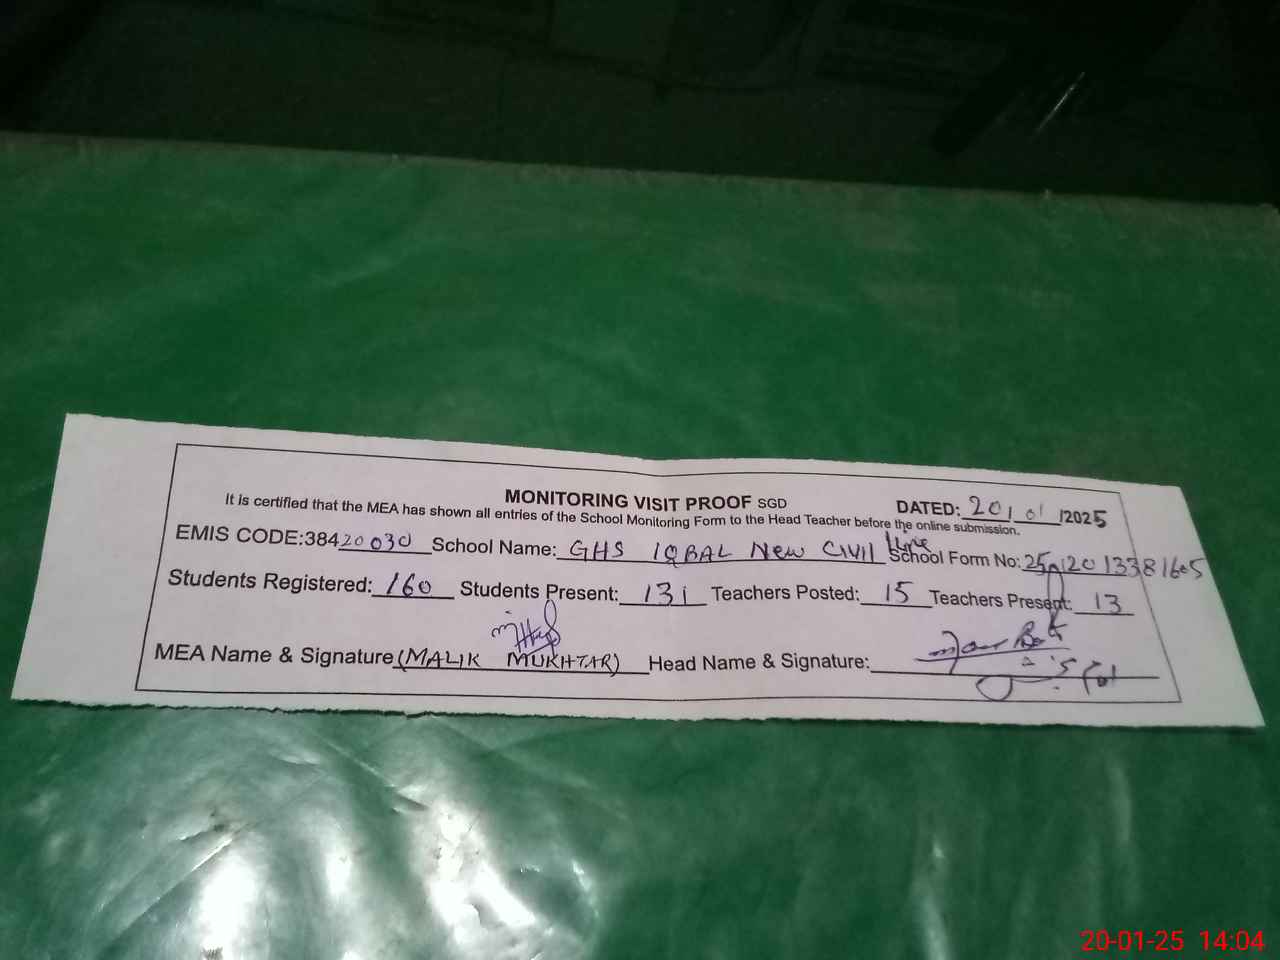 MONITORING VISIT PROOF SGD DATED: 20/01/2025
It is certified that the MEA has shown all entries of the School Monitoring Form to the Head Teacher before the online submission.
EMIS CODE:38420030 School Name: GHS IQBAL New CIVIL line School Form No: 25012013381605
Students Registered: 160 Students Present: 131 Teachers Posted: 15 Teachers Present: 13
MEA Name & Signature (MALIK MUKHTAR) Head Name & Signature:
20-01-25 14:04